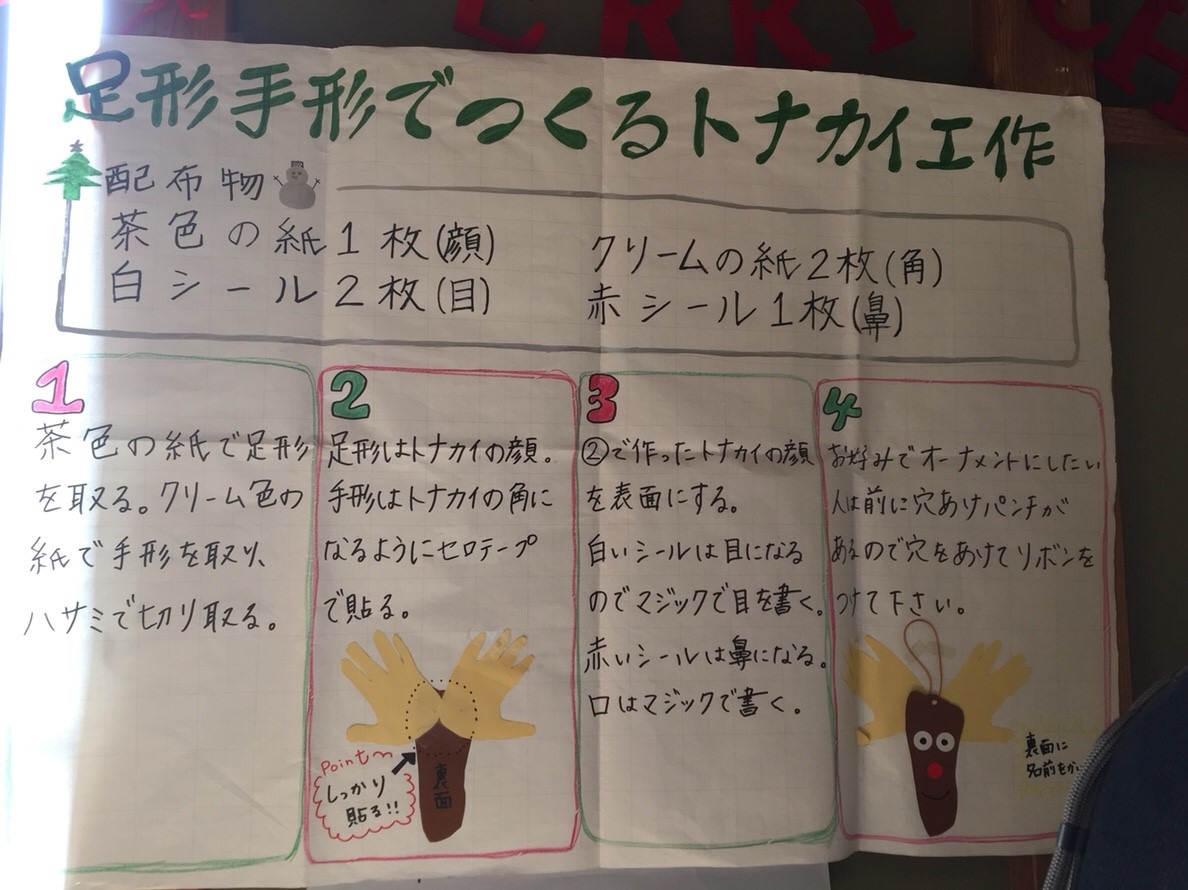 ERRY CH
足形手形でつくるトナカイ工作
配布物
茶色の紙1枚(顔)
白シール2枚(目)
クリームの紙2枚(角)
赤シール1枚(鼻)
1
茶色の紙で足形
を取る。クリーム色の
紙で手形を取り、
ハサミで切り取る。
2
足形はトナカイの顔。
手形はトナカイの角に
なるようにセロテープ
で貼る。
Point
しっかり
貼る!!
裏面
3
②で作ったトナカイの顔
を表面にする。
白いシールは目になる
のでマジックで目を書く。
赤いシールは鼻になる。
口はマジックで書く。
4
お好みでオーナメントにしたい
人は前に穴あけパンチが
あるので穴をあけてリボンを
つけて下さい。
裏面に
名前をか